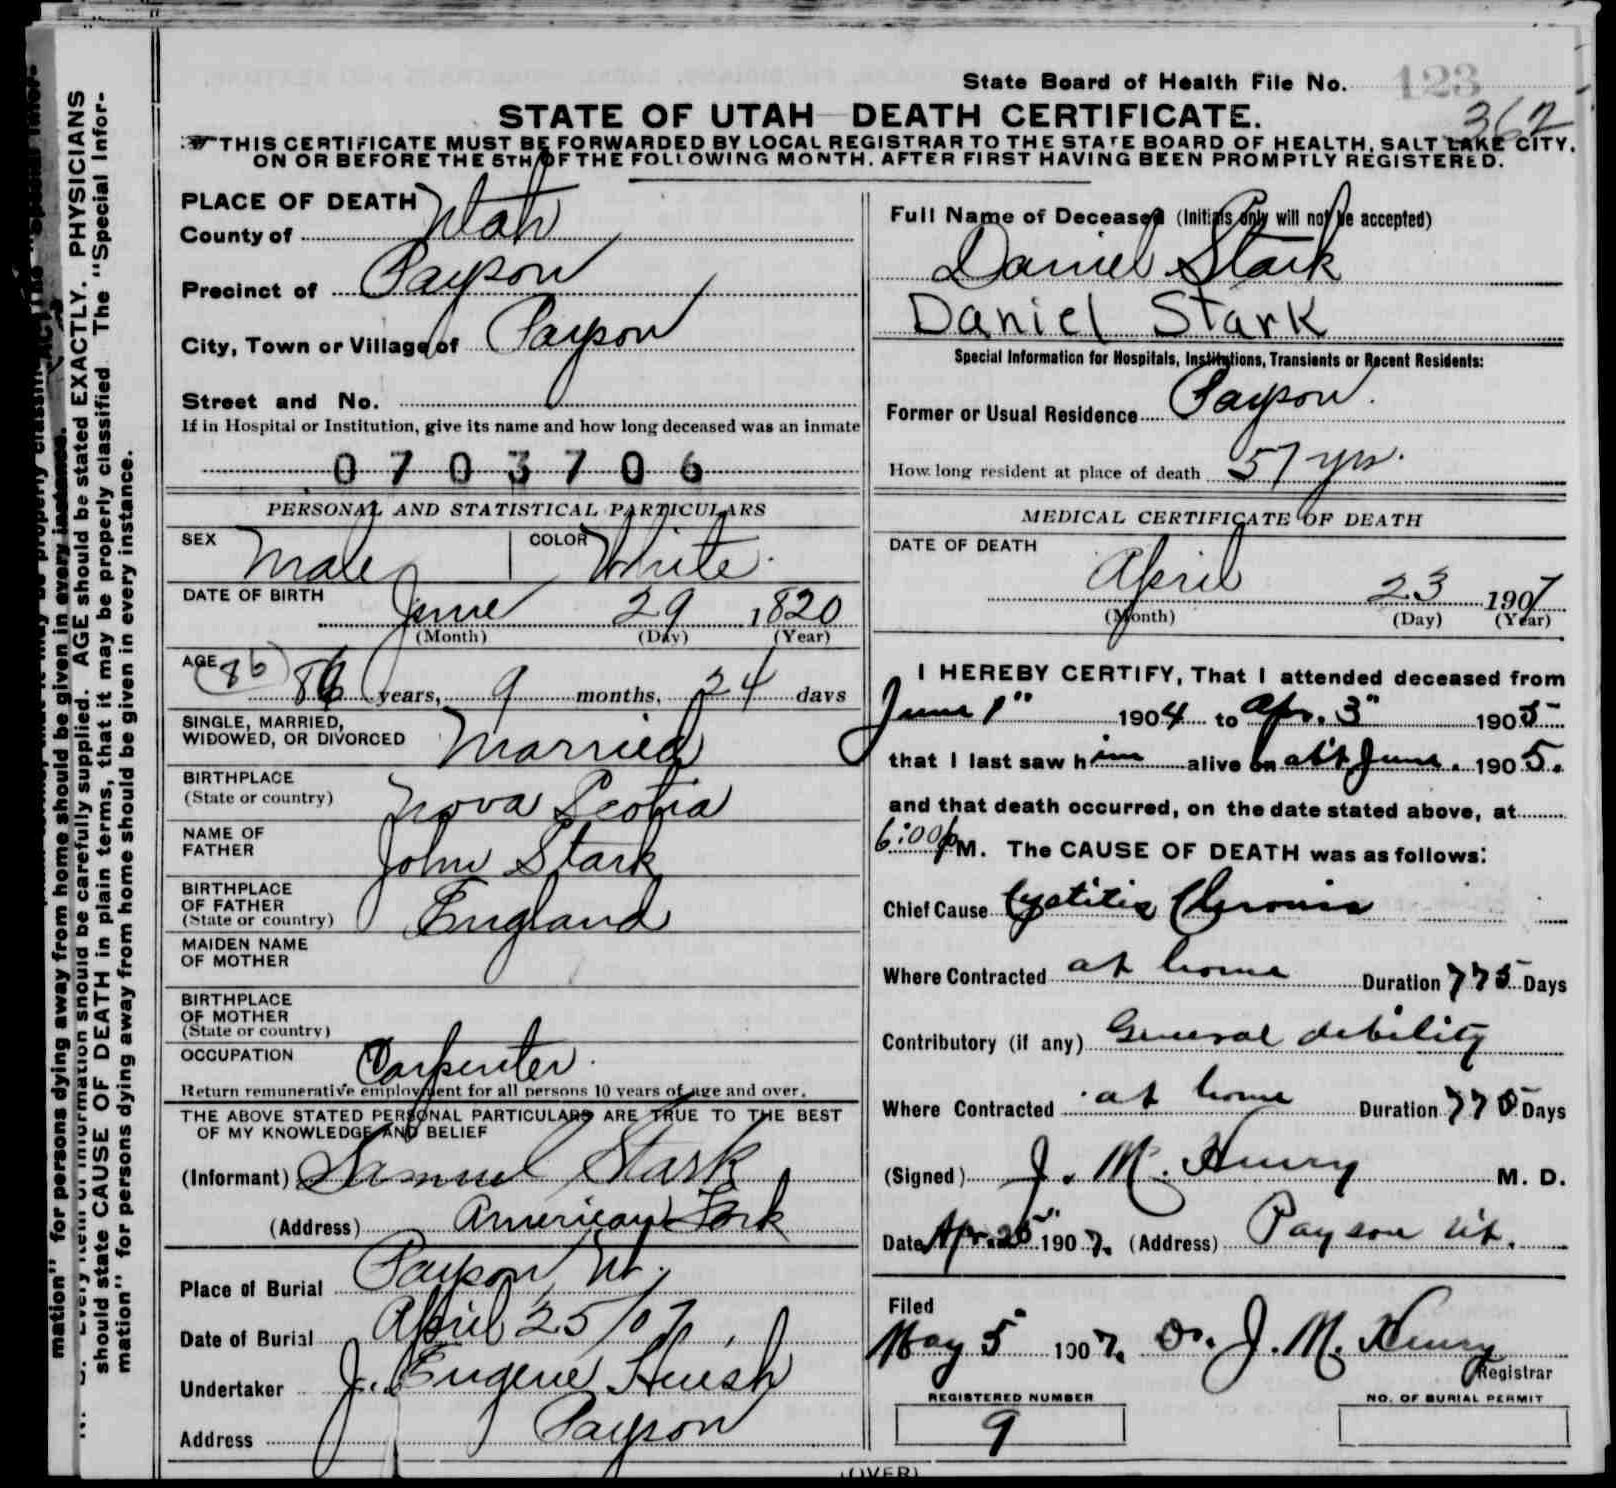 State Board of Health File No. 123
362
STATE OF UTAH DEATH CERTIFICATE.
THIS CERTIFICATE MUST BE FORWARDED BY LOCAL REGISTRAR TO THE STATE BOARD OF HEALTH, SALT LAKE CITY,
ON OR BEFORE THE 5TH OF THE FOLLOWING MONTH, AFTER FIRST HAVING BEEN PROMPTLY REGISTERED.
PLACE OF DEATH
County of Utah
Precinct of Payson
City, Town or Village of Payson
Street and No.
If in Hospital or Institution, give its name and how long deceased was an inmate
0703706
PERSONAL AND STATISTICAL PARTICULARS
SEX Male COLOR White.
DATE OF BIRTH June 29 1820
(Month) (Day) (Year)
AGE (86) 86 years, 9 months, 24 days
SINGLE, MARRIED,
WIDOWED, OR DIVORCED Married
BIRTHPLACE
(State or country) Nova Scotia
NAME OF
FATHER John Stark
BIRTHPLACE
OF FATHER
(State or country) England
MAIDEN NAME
OF MOTHER
BIRTHPLACE
OF MOTHER
(State or country)
OCCUPATION Carpenter.
Return remunerative employment for all persons 10 years of age and over.
THE ABOVE STATED PERSONAL PARTICULARS ARE TRUE TO THE BEST
OF MY KNOWLEDGE AND BELIEF
(Informant) Samuel Stark
(Address) American Fork
Place of Burial Payson Ut.
Date of Burial April 25/07,
Undertaker J. Eugene Huish
Address Payson
Full Name of Deceased (Initials Only will not be accepted)
Daniel Stark
Daniel Stark
Special Information for Hospitals, Institutions, Transients or Recent Residents:
Former or Usual Residence Payson.
How long resident at place of death 57 yrs.
MEDICAL CERTIFICATE OF DEATH
DATE OF DEATH
April 23 1907
(Month) (Day) (Year)
I HEREBY CERTIFY, That I attended deceased from
June 1" 1904 to Apr. 3" 1905
that I last saw him alive on abt June. 1905.
and that death occurred, on the date stated above, at
6:00 p M. The CAUSE OF DEATH was as follows:
Chief Cause Cystitis Chronic
Where Contracted at home Duration 775 Days
Contributory (if any) General debility
Where Contracted at home Duration 775 Days
(Signed) J. M. Henry M. D.
Date Apr. 25" 1907. (Address) Payson Ut.
Filed
May 5 1907. Dr. J. M. Henry
Registrar
REGISTERED NUMBER
9
NO. OF BURIAL PERMIT
(OVER)
AGE should be stated EXACTLY. PHYSICIANS
should state CAUSE OF DEATH in plain terms, that it may be properly classified. The "Special Infor-
mation" for persons dying away from home should be given in every instance.